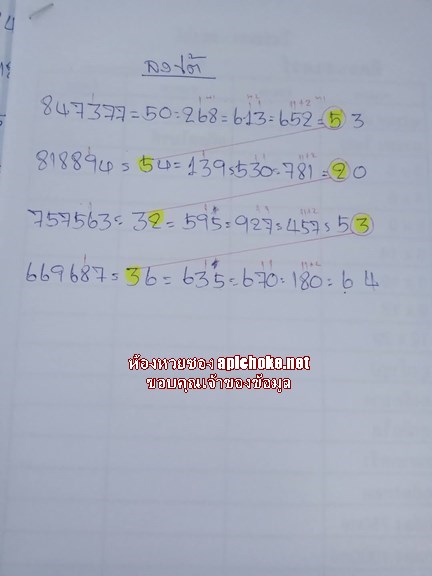 847377=50=268=613=652=53
818894=54=139=530=781=20
757563=32=595=927=457=53
669687=36=635=670=180=64
ห้องหวยซอง apichoke.net
ขอบคุณเจ้าของข้อมูล